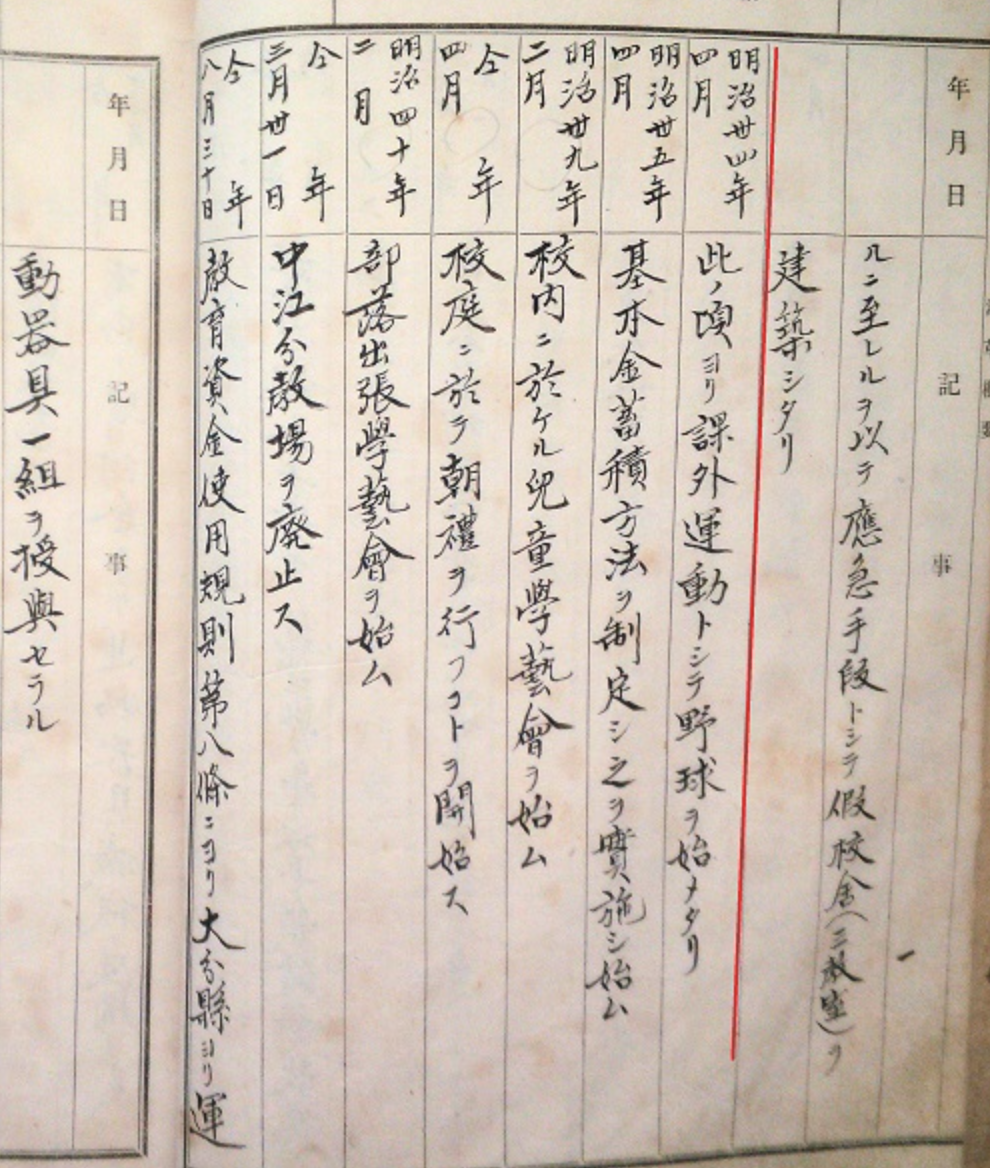 年月日
記事
ルニ至レルヲ以テ應急手段トシテ假校舎(二教室)ヲ
建築シタリ
明治卅四年
四月
此ノ頃ヨリ課外運動トシテ野球ヲ始メタリ
明治卅五年
四月
基本金蓄積方法ヲ制定シ之ヲ實施シ始ム
明治卅九年
二月
校内ニ於ケル兒童學藝會ヲ始ム
仝年
四月
校庭ニ於テ朝禮ヲ行フコトヲ開始ス
明治四十年
二月
部落出張學藝會ヲ始ム
仝年
三月卅一日
中江分教場ヲ廃止ス
仝年
八月三十日
教育資金使用規則第八條ニヨリ大分縣ヨリ運
年月日
記事
動器具一組ヲ授與セラル